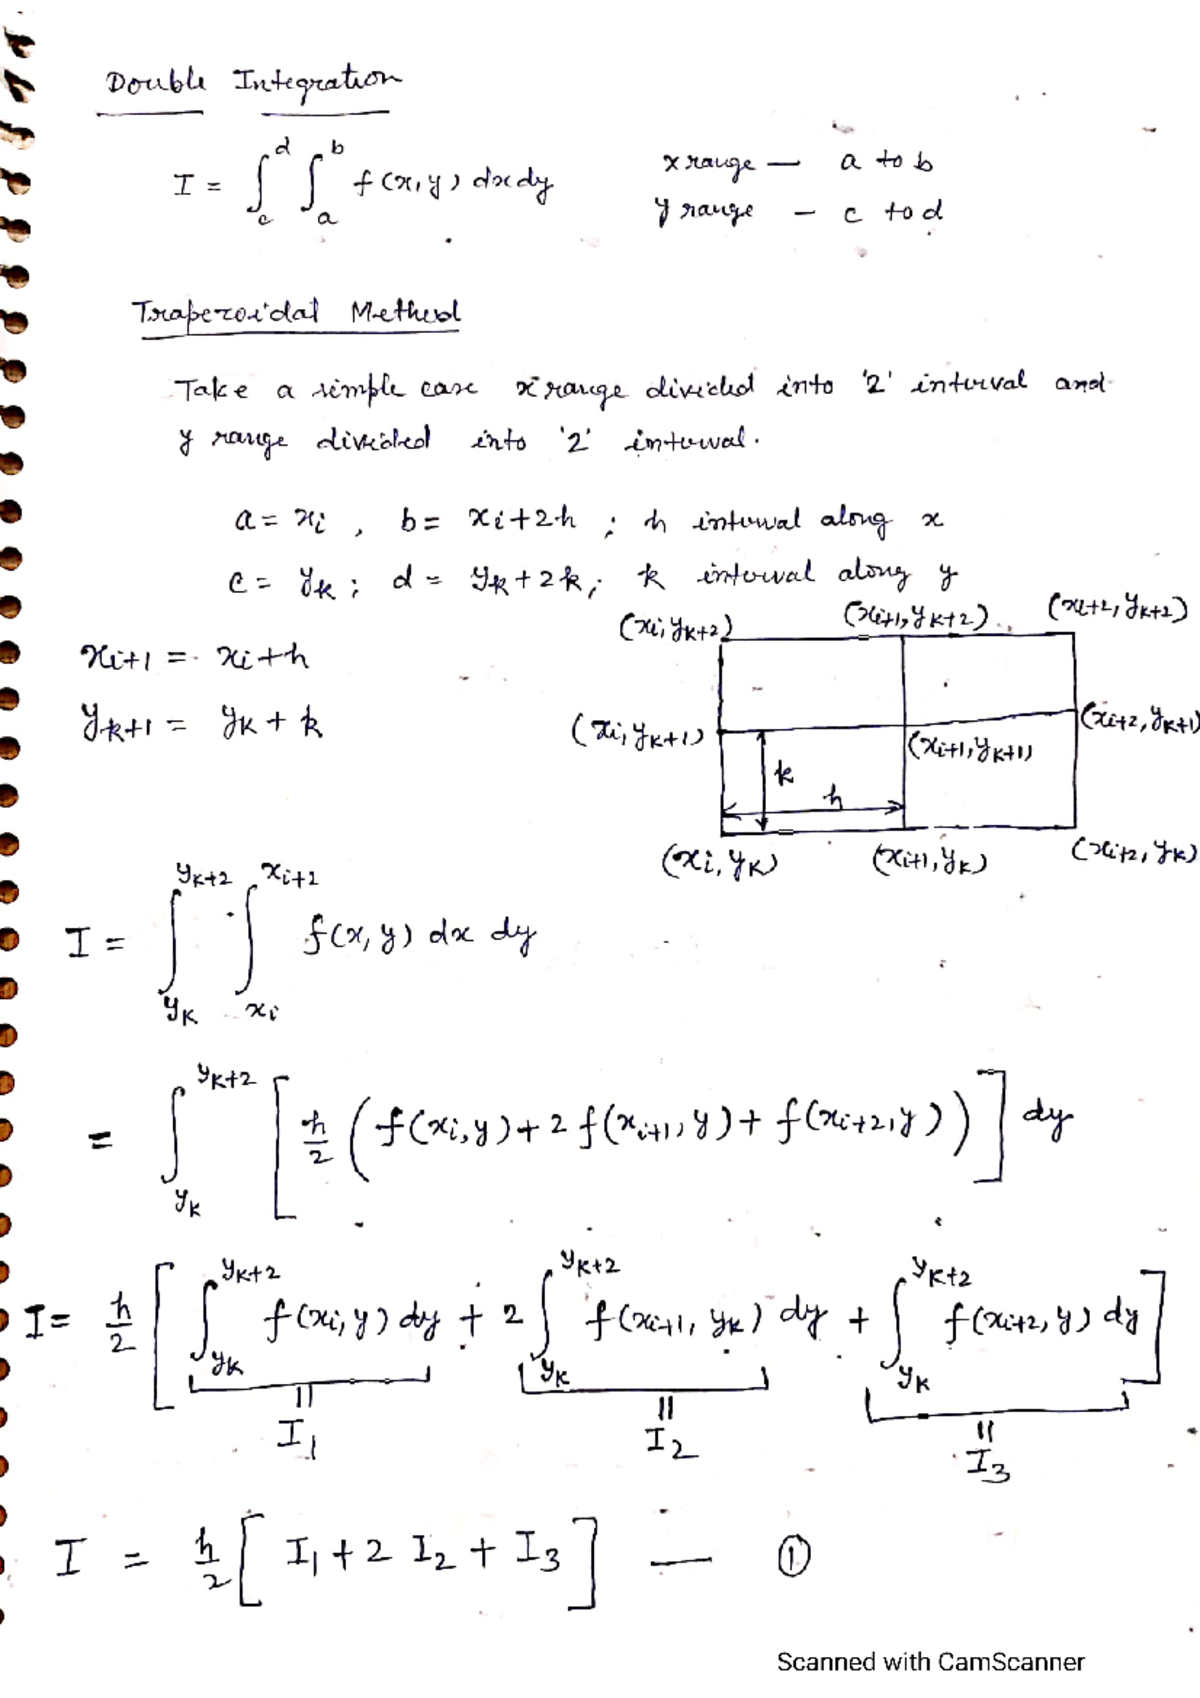 Double Integration
I = ∫_c^d ∫_a^b f(x,y) dxdy
x range — a to b
y range – c to d
Trapezoidal Method
Take a simple case x range divided into '2' interval and
y range divided into '2' interval.
a = xi , b = xi+2h ; h interval along x
c = yk ; d = yk+2k ; k interval along y
xi+1 = xi+h
yk+1 = yk + k
(xi, yk+2) (xi+1, yk+2) (xi+2, yk+2)
(xi, yk+1) (xi+1, yk+1) (xi+2, yk+1)
k
h
(xi, yk) (xi+1, yk) (xi+2, yk)
I = ∫_yk^yk+2 ∫_xi^xi+2 f(x,y) dx dy
= ∫_yk^yk+2 [ h/2 ( f(xi,y) + 2 f(xi+1, y) + f(xi+2,y) ) ] dy
I = h/2 [ ∫_yk^yk+2 f(xi,y) dy + 2 ∫_yk^yk+2 f(xi+1, yk) dy + ∫_yk^yk+2 f(xi+2, y) dy ]
= I1 = I2 = I3
I = h/2 [ I1 + 2 I2 + I3 ] — ①
Scanned with CamScanner